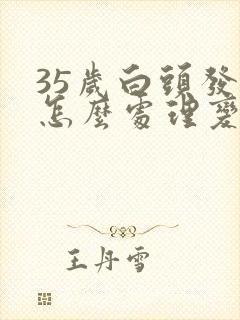 35歲白頭發
怎麼處理變
王丹雪